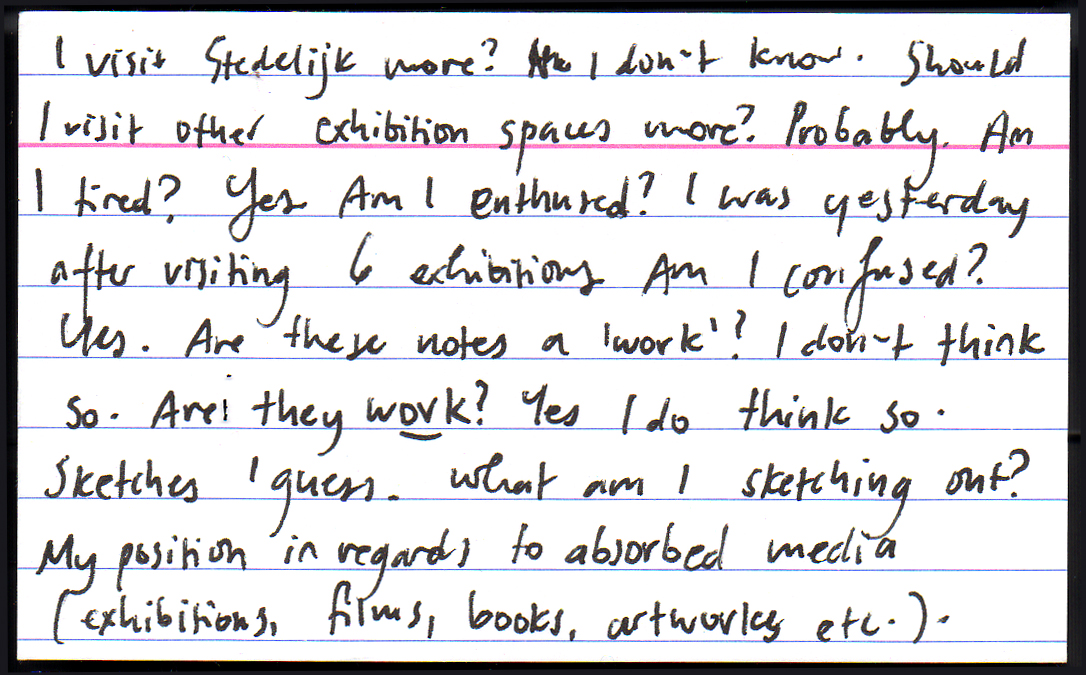 I visit Stedelijk more? I don't know. Should
I visit other exhibition spaces more? Probably. Am
I tired? Yes Am I enthused? I was yesterday
after visiting 6 exhibitions Am I confused?
Yes. Are these notes a 'work'? I don't think
so. Are they work? Yes I do think so.
Sketches I guess. What am I sketching out?
My position in regards to absorbed media
(exhibitions, films, books, artworks etc.).